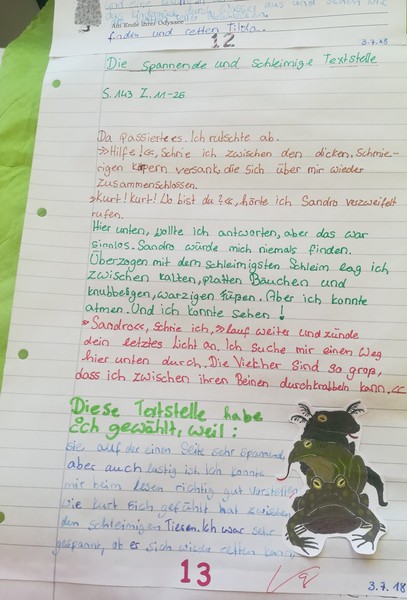 Am Ende ihrer Odyssee
finden und retten Tilda.
12
3.7.18
Die spannende und schleimige Textstelle
S. 143 Z. 11-26
Da passierte es. Ich rutschte ab.
»Hilfe!«, schrie ich zwischen den dicken, schmie-
rigen Körpern versank, die sich über mir wieder
zusammenschlossen.
»Kurt! Kurt! Wo bist du?«, hörte ich Sandro verzweifelt
rufen.
Hier unten, wollte ich antworten, aber das war
sinnlos. Sandro würde mich niemals finden.
Überzogen mit dem schleimigsten Schleim lag ich
zwischen kalten, platten Bäuchen und
knubbeligen, warzigen Füßen. Aber ich konnte
atmen. Und ich konnte sehen!
»Sandro«, schrie ich, »lauf weiter und zünde
dein letztes Licht an. Ich suche mir einen Weg
hier unten durch. Die Viecher sind so groß,
dass ich zwischen ihren Beinen durchkrabbeln kann.«
Diese Textstelle habe
ich gewählt, weil:
sie auf der einen Seite sehr spannend,
aber auch lustig ist. Ich konnte
mir beim lesen richtig gut vorstellen
wie Kurt sich gefühlt hat zwischen
den schleimigen Tieren. Ich war sehr
gespannt, ob er sich wieder retten kann.
13
3.7.18